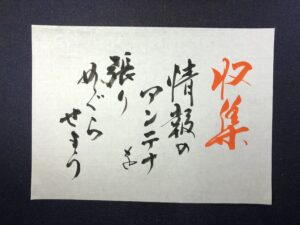 収集
情報の
アンテナを
張り
めぐら
せよう